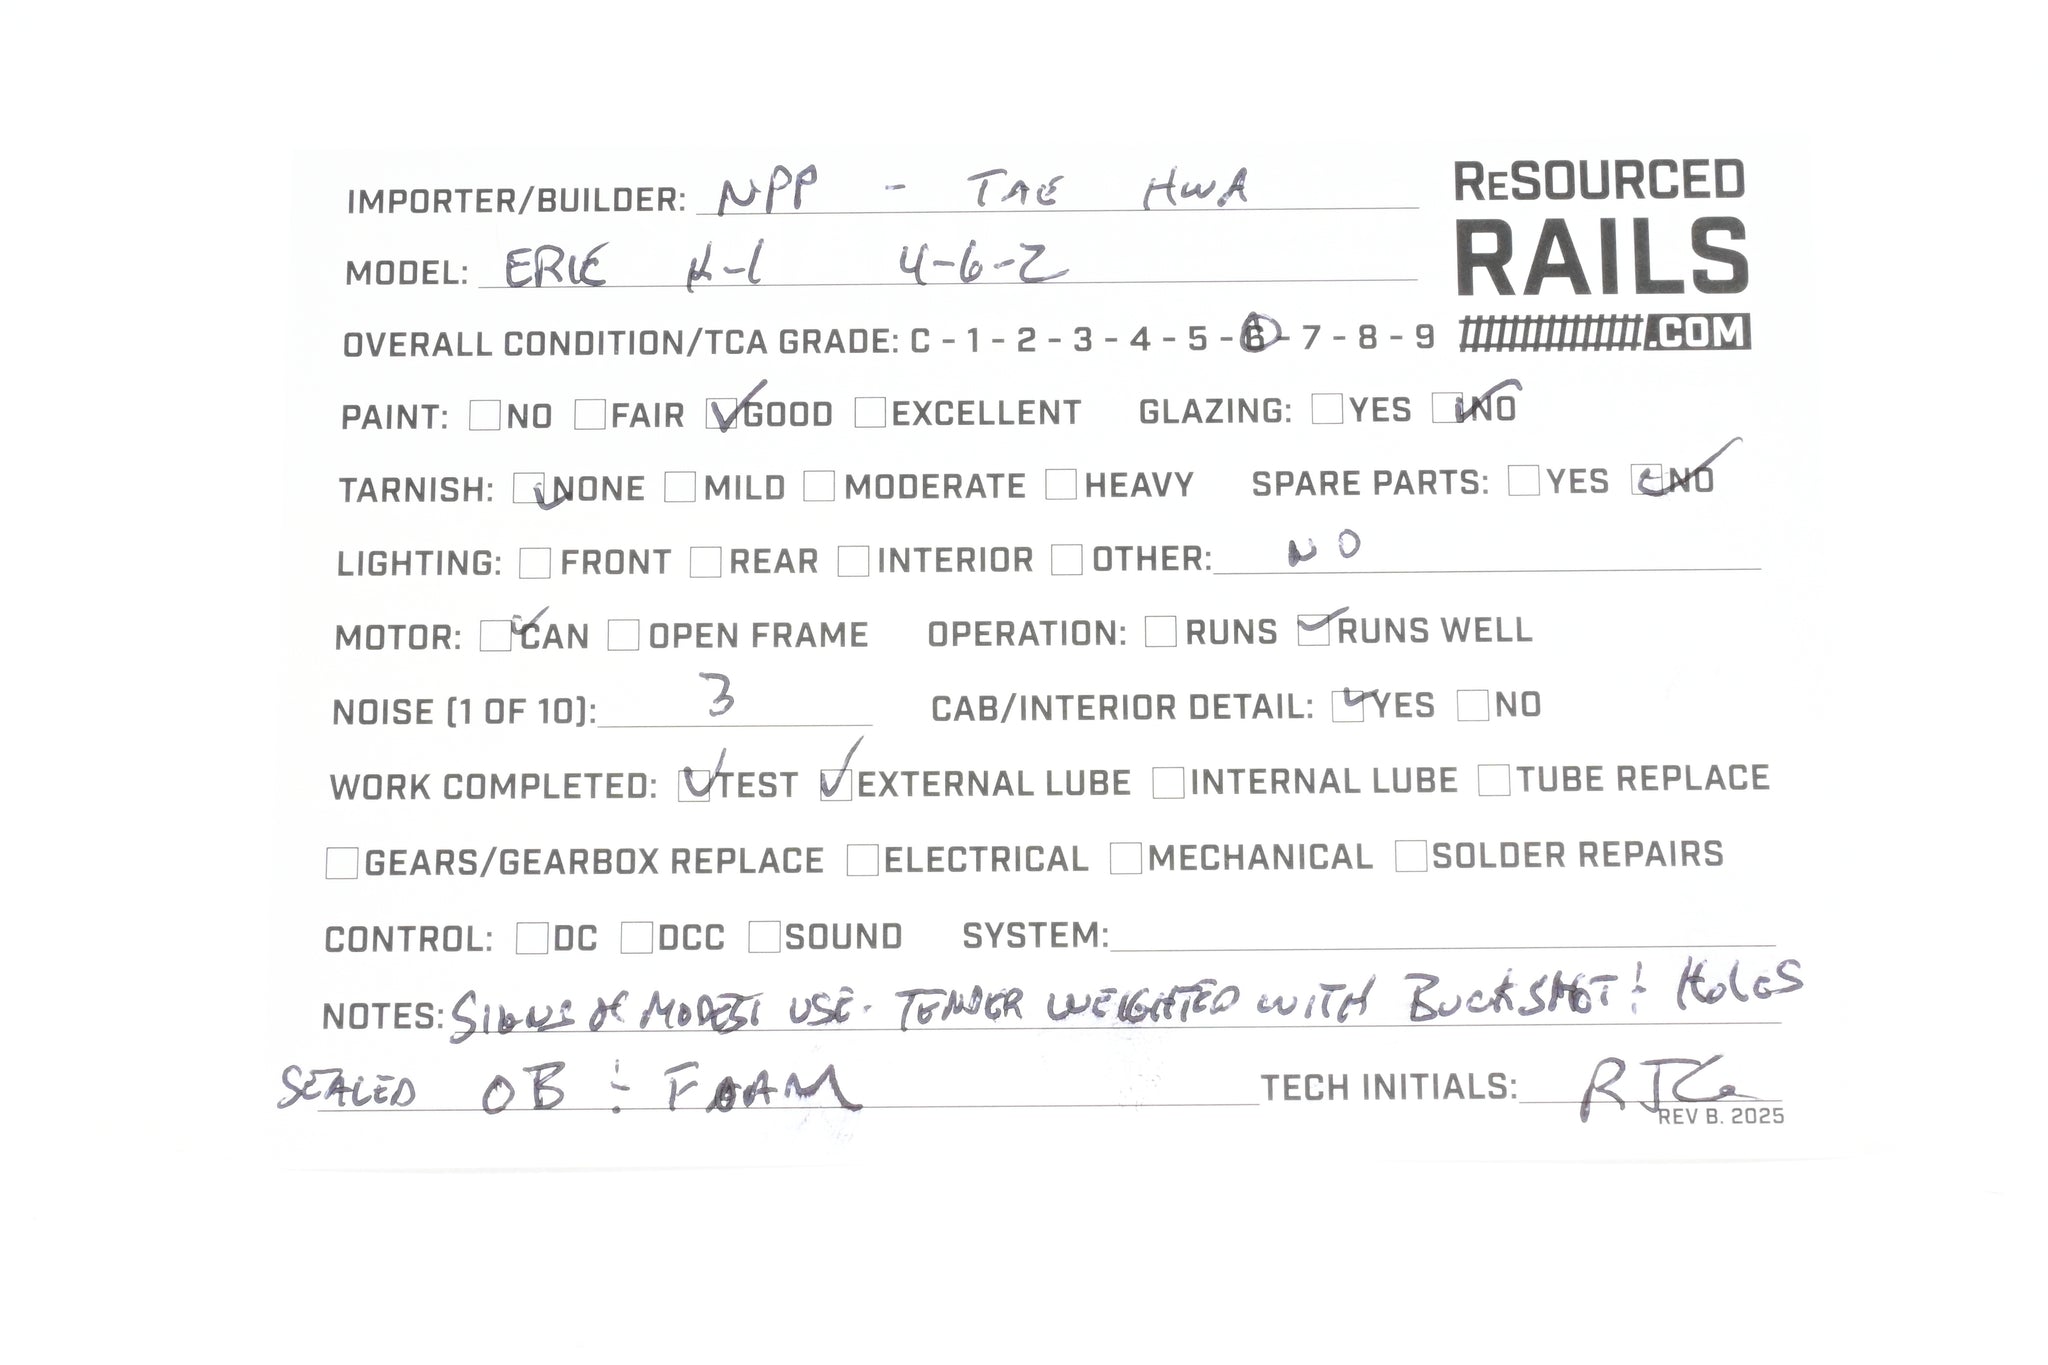 IMPORTER/BUILDER: NPP - TAE HWA
RESOURCED
RAILS
.COM
MODEL: ERIE K-1 4-6-2
OVERALL CONDITION/TCA GRADE: C - 1 - 2 - 3 - 4 - 5 - 6 - 7 - 8 - 9
PAINT: NO FAIR GOOD EXCELLENT GLAZING: YES NO
TARNISH: NONE MILD MODERATE HEAVY SPARE PARTS: YES NO
LIGHTING: FRONT REAR INTERIOR OTHER: NO
MOTOR: CAN OPEN FRAME OPERATION: RUNS RUNS WELL
NOISE (1 OF 10): 3 CAB/INTERIOR DETAIL: YES NO
WORK COMPLETED: TEST EXTERNAL LUBE INTERNAL LUBE TUBE REPLACE
GEARS/GEARBOX REPLACE ELECTRICAL MECHANICAL SOLDER REPAIRS
CONTROL: DC DCC SOUND SYSTEM:
NOTES: SIGNS OF MODEST USE. TENDER WEIGHTED WITH BUCKSHOT & HOLES
SEALED OB & FOAM TECH INITIALS:
REV B. 2025